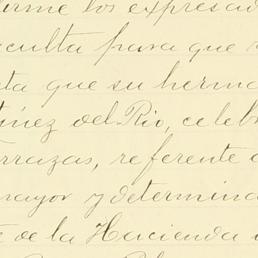 rme los expresad
culta para que
ta que su herma
tínez del Río, celeb
rrazas, referente a
mayor y determina
te de la Hacienda